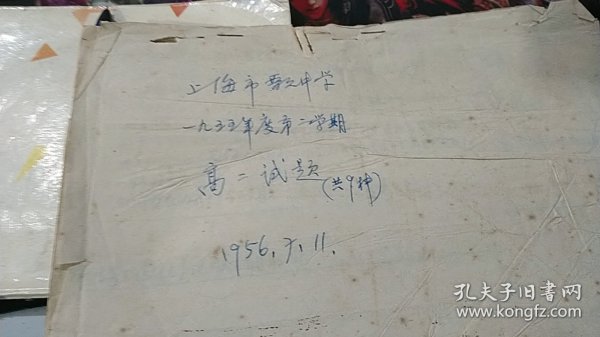 上海市晋元中学
一九五五年度第二学期
高二试题(共9种)
1956.7.11.
孔夫子旧书网
www.kongfz.com